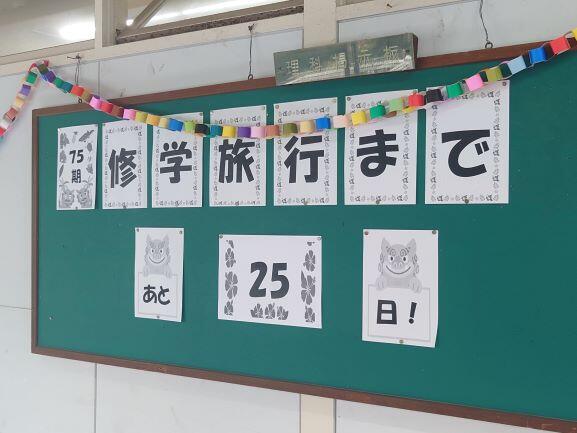 理科掲示板
75期
修学旅行まで
あと 25 日！